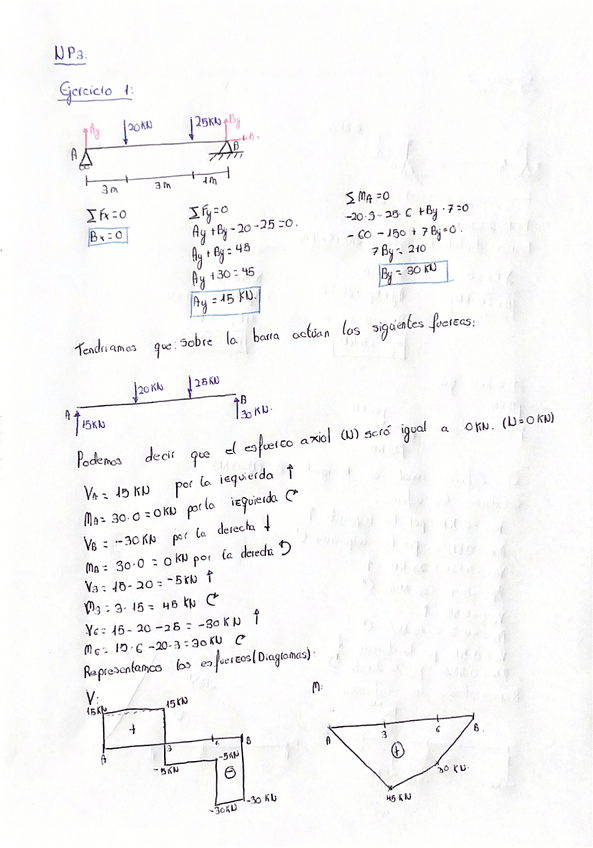 NP3.
Ejercicio 1:
Ay 20KN 25KN By
A B
3m 3m 1m
ΣFx=0
Bx=0
ΣFy=0
Ay+By-20-25=0.
Ay+By=45
Ay+30=45
Ay=15 KN.
ΣMA=0
-20·3-25·6+By·7=0
-60-150+7By=0.
7By=210
By=30 KN
Tendriamos que: sobre la barra actúan las siguientes fuerzas:
20KN 25KN
A B
15KN 30KN.
Podemos decir que el esfuerzo axial (N) será igual a 0KN. (N=0KN)
VA = 15 KN por la izquierda ↑
30·0=0KN por la izquierda
VB = -30KN por la derecha ↓
30·0 = 0 KN por la derecha
V3 = 15-20 = -5KN ↑
M3 = 3·15 = 45 KN
V6 = 15-20-25 = -30KN ↑
M6 = 15·6-20·3=30KN
Representamos los esfuerzos (Diagramas):
V: M:
15KN 15KN
+
A 3 6 B
-5KN -5KN
⊖
-30KN -30KN
A 3 6 B
⊕
30 KN.
45 KN